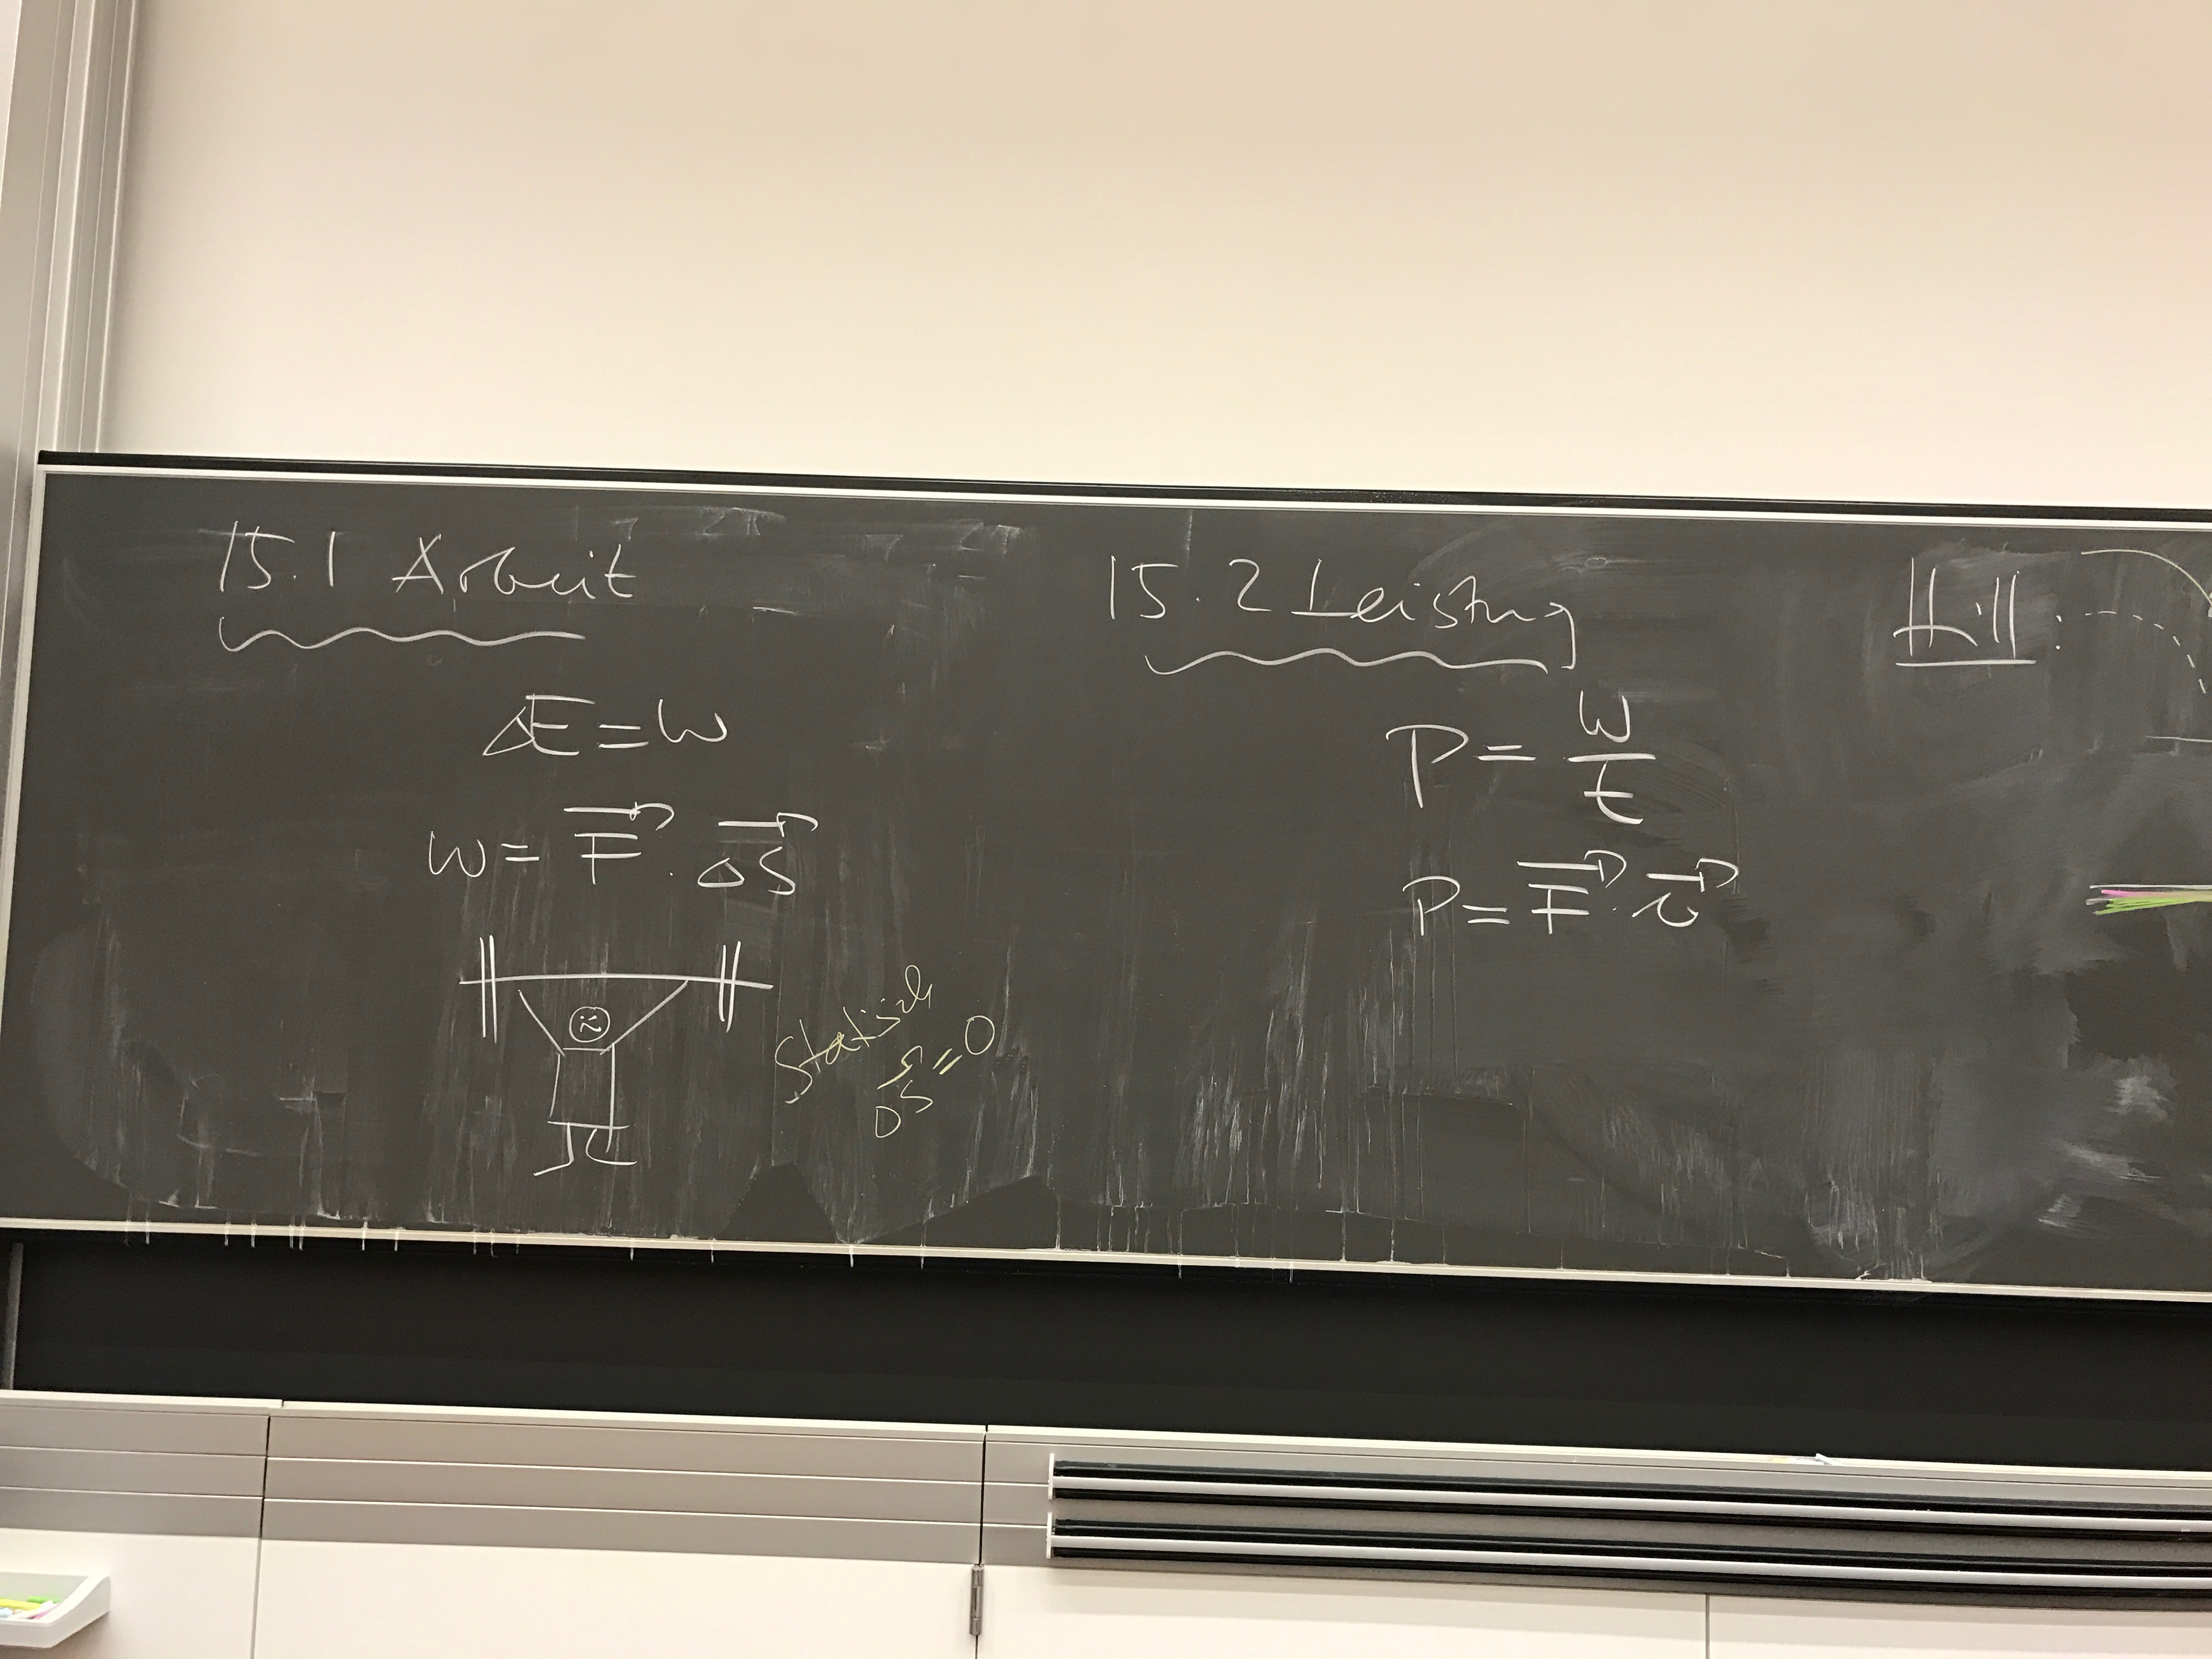 15.1 Arbeit
ΔE = W
W = F⃗ · Δs⃗
Statisch
Δs⃗ = 0
15.2 Leistung
P = W/t
P = F⃗ · v⃗
Hill: